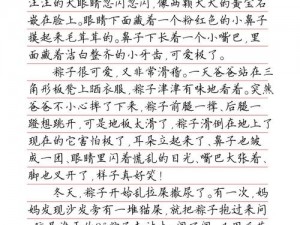 汪汪的大眼睛忽闪忽闪，像两颗大大的黄宝石
嵌在脸上。眼睛下面藏着一个粉红色的小鼻子
摸起来毛茸茸的。鼻子下长着一个小嘴巴，里
面藏着洁白整齐的小牙齿，可爱极了。
粽子很可爱，又非常滑稽。一天爸爸站在三
角形板凳上晒衣服，粽子津津有味地看着。突然
爸爸不小心摔了下来，粽子前腿一撑，后腿一
蹬想跳开，可是地板太滑了，粽子滑倒在地上了
现在的它害怕极了，耳朵立起来了，鼻子也皱
成一团，眼睛里闪着慌乱的目光，嘴巴大张着、
脚也叉开了，样子真好笑！
冬天，粽子开始乱拉屎撒尿了。有一次，妈
妈发现沙发旁有一堆猫屎，就把粽子抱过来问